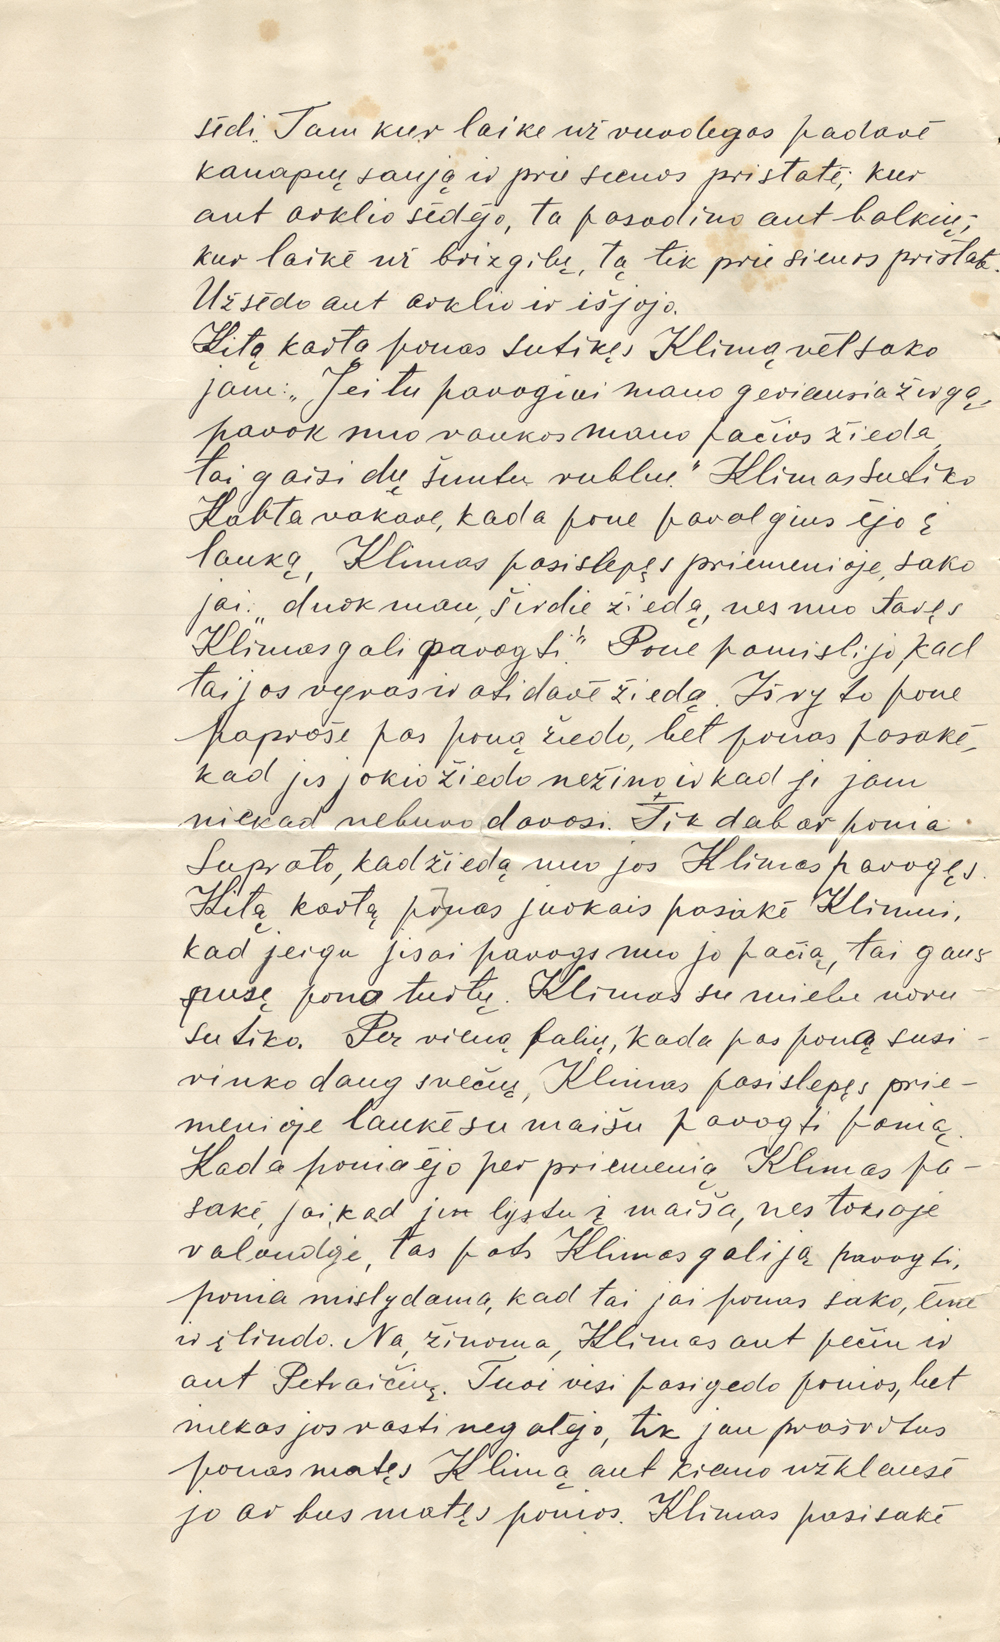 sėdi. Tam kur laike už vuodegos padavė
kanapių saują ir prie sienos pristatė; kur
ant arklio sėdėjo, tą pasodino ant balkių;
kur laikė už brizgilų, tą tik prie sienos pristatė.
Užsėdo ant arklio ir išjojo.
Kitą kartą ponas sutikęs Klimą vėl sako
jam: „Jei tu pavogiai mano geriausia žirgą,
pavok nuo rankos mano pačios žiedą,
tai gaisi dų šimtu rublių." Klimas sutiko
Karta vakare, kada pone pavalgius ėjo į
lauką, Klimas pasislepęs priemenioje, sako
jai: „duok man, širdie žiedą, nes nuo tavęs
Klimas gali pavogti!" Pone pamislijo, kad
tai jos vyras ir atidavė žiedą. Iš ryto pone
paprašė pas poną žiedo, bet ponas pasakė,
kad jis jokio žiedo nežino ir kad ji jam
niekad nebuvo davosi. Tik dabar ponia
suprato, kad žiedą nuo jos Klimas pavogęs.
Kitą kartą ponas juokais pasakė Klimui,
kad jeigu jisai pavogs nuo jo pačią, tai gaus
pusę pono turtų. Klimas su mielu noru
sutiko. Per vieną balių, kada pas poną susi-
rinko daug svečių, Klimas pasislepęs prie-
menioje laukė su maišu pavogti ponią.
Kada ponia ėjo per priemenią Klimas pa-
sakė, jai, kad jin lystu į maiša, nes tokioje
valandoje, tas pats Klimas gali ją pavogti,
ponia mislydama, kad tai jai ponas sako, ėmė
ir įlindo. Na, žinoma, Klimas ant pečių ir
ant Petraičių. Tuoi visi pasigedo ponios, bet
niekas jos rasti negalėjo, tik jau praširdus
ponas matęs Klimą ant kiemo užklausė
jo ar bus matęs ponios. Klimas pasisakė